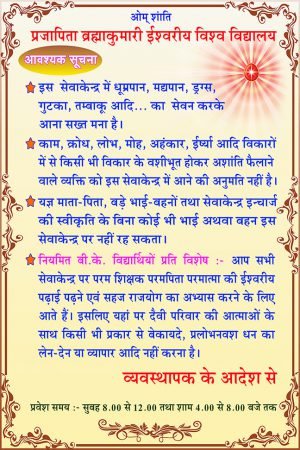 ओम् शांति
प्रजापिता ब्रह्माकुमारी ईश्वरीय विश्व विद्यालय
आवश्यक सूचना
इस सेवाकेन्द्र में धूम्रपान, मद्यपान, ड्रग्स,
गुटका, तम्वाकू आदि... का सेवन करके
आना सख्त मना है।
काम, क्रोध, लोभ, मोह, अहंकार, ईर्ष्या आदि विकारों
में से किसी भी विकार के वशीभूत होकर अशांति फैलाने
वाले व्यक्ति को इस सेवाकेन्द्र में आने की अनुमति नहीं है।
यज्ञ माता-पिता, वड़े भाई-वहनों तथा सेवाकेन्द्र इन्चार्ज
की स्वीकृति के विना कोई भी भाई अथवा वहन इस
सेवाकेन्द्र पर नहीं रह सकता।
नियमित वी.के. विद्यार्थियों प्रति विशेष :- आप सभी
सेवाकेन्द्र पर परम शिक्षक परमपिता परमात्मा की ईश्वरीय
पढ़ाई पढ़ने एवं सहज राजयोग का अभ्यास करने के लिए
आते हैं। इसलिए यहां पर दैवी परिवार की आत्माओं के
साथ किसी भी प्रकार से वेकायदे, प्रलोभनवश धन का
लेन-देन या व्यापार आदि नहीं करना है।
व्यवस्थापक के आदेश से
प्रवेश समय :- सुवह 8.00 से 12.00 तथा शाम 4.00 से 8.00 वजे तक